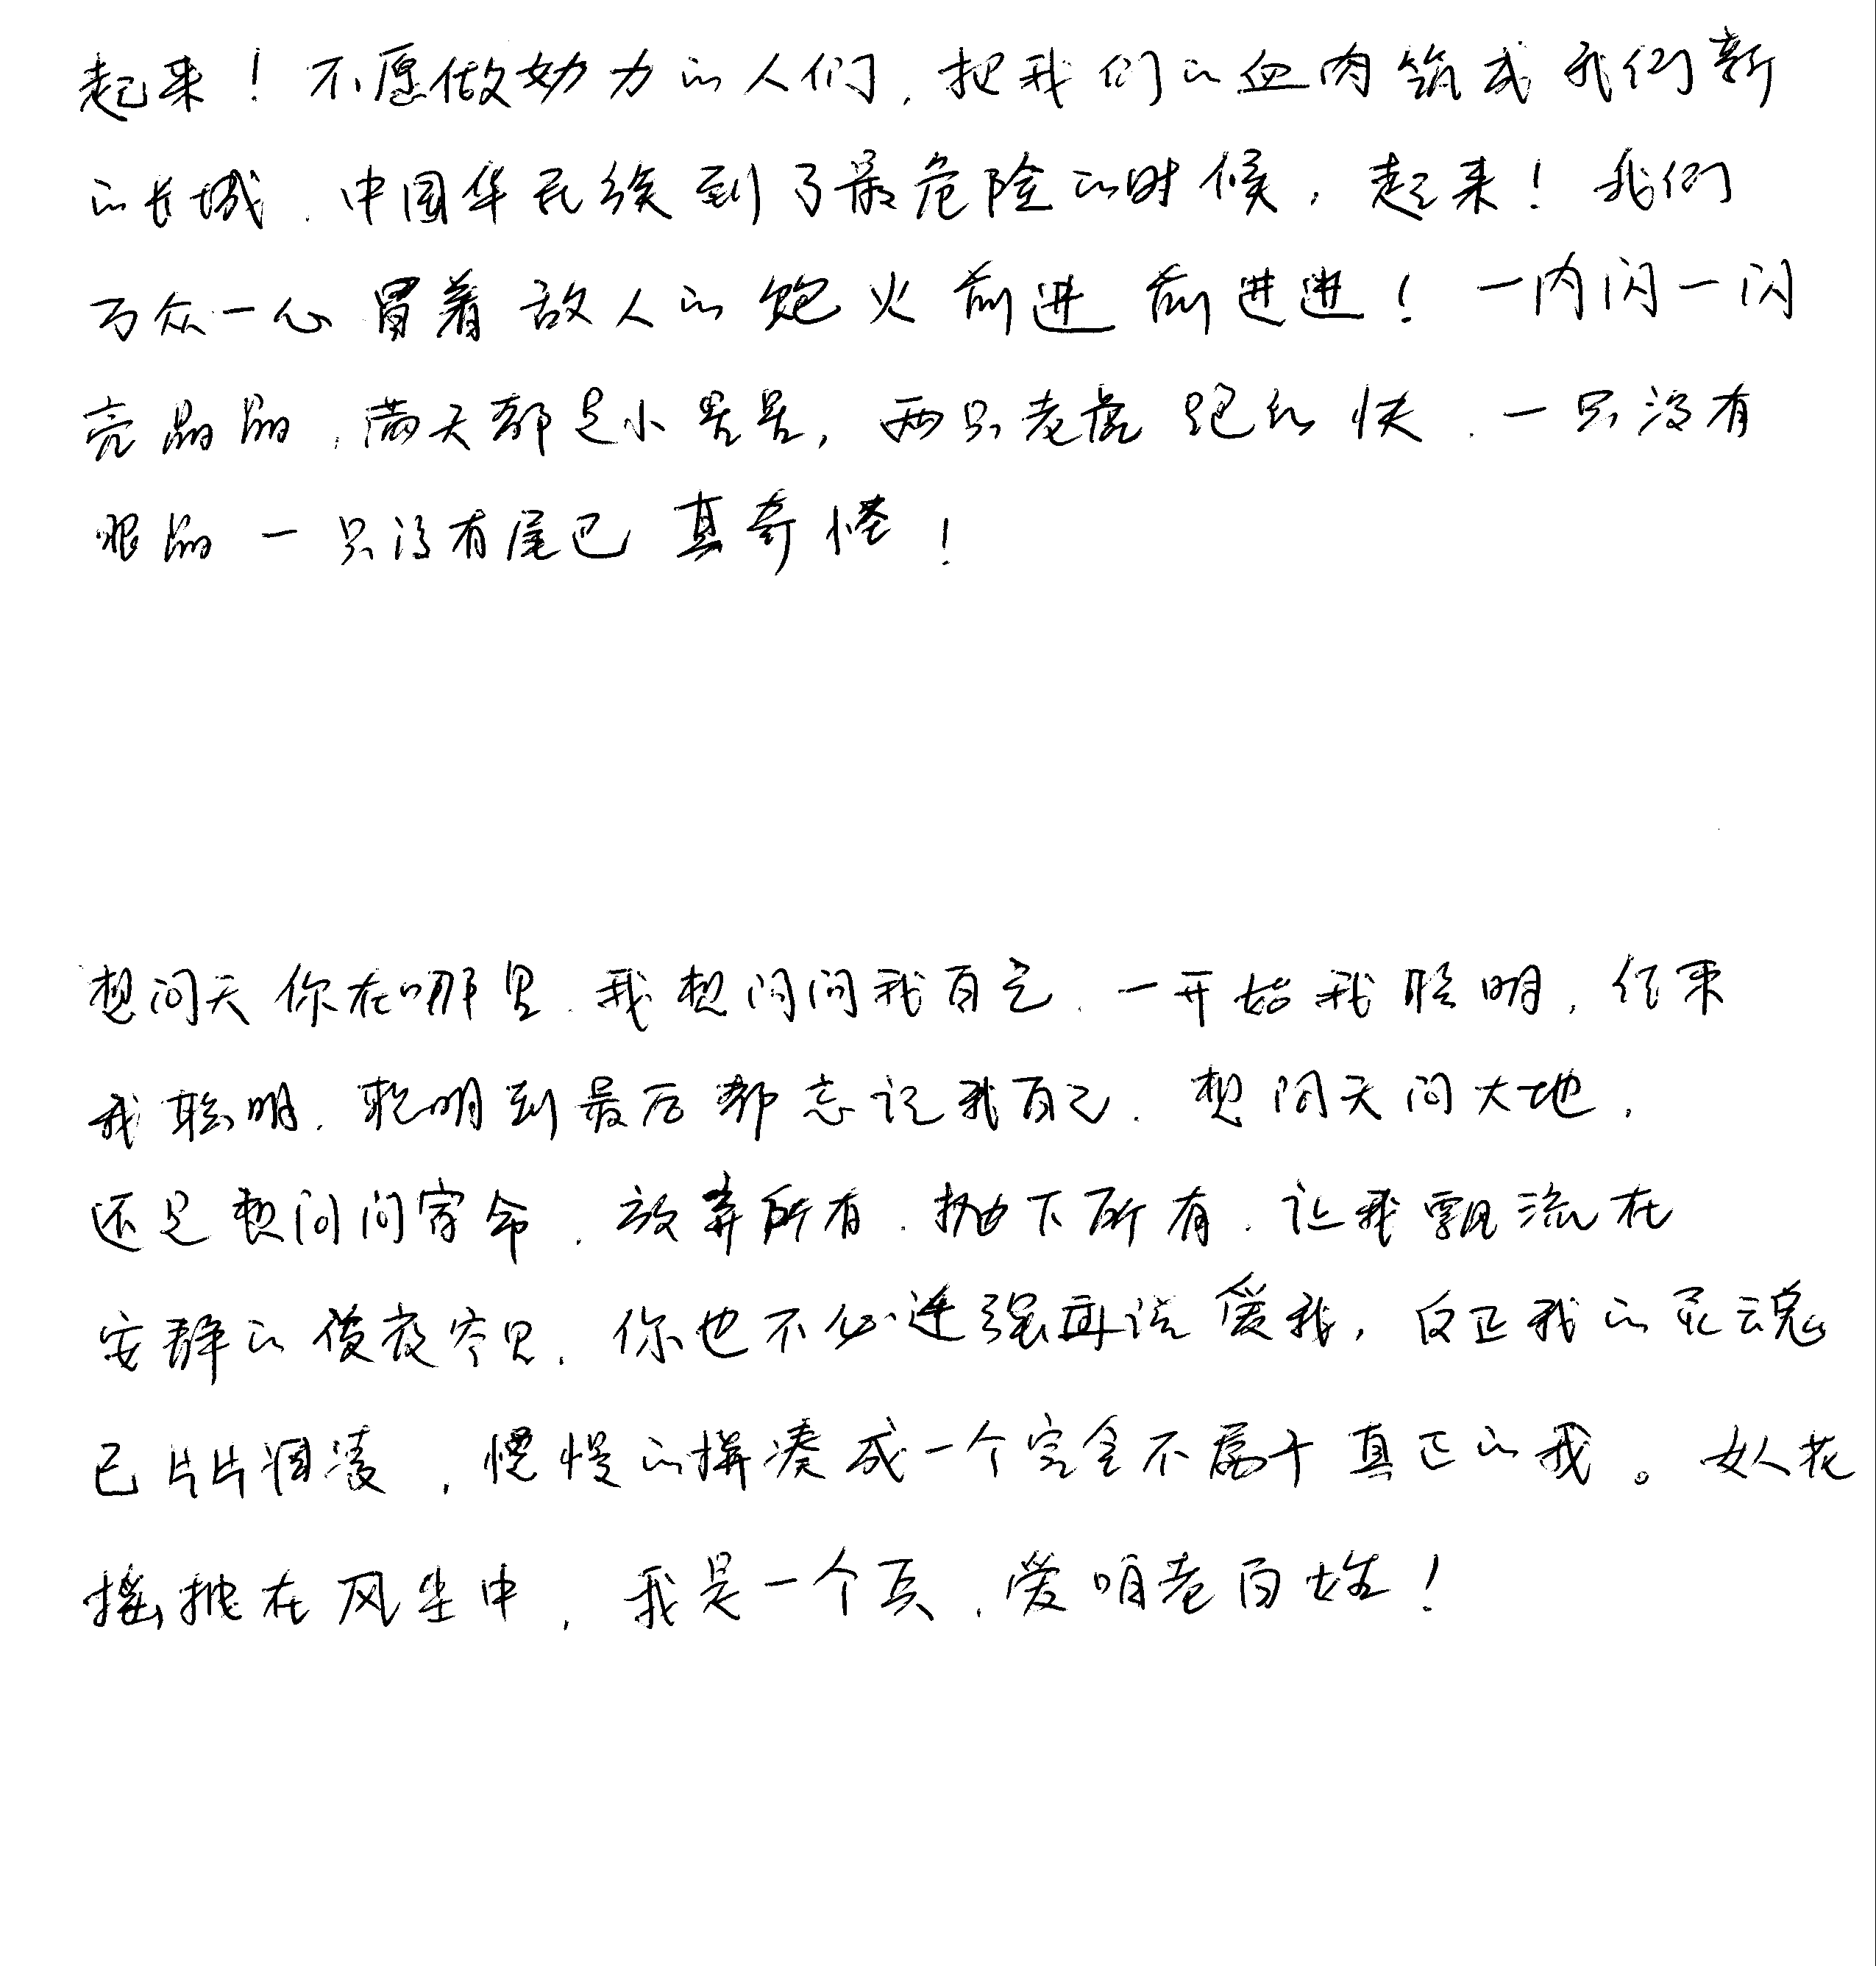 起来！不愿做奴力的人们，把我们的血肉筑成我们新
的长城．中国华民族到了最危险的时候，起来！我们
万众一心冒着敌人的炮火前进前进进！一闪闪一闪
亮晶晶，满天都是小星星，两只老虎跑的快．一只没有
眼睛一只没有尾巴真奇怪！
想问天你在哪里．我想问问我自己．一开始我聪明，结束
我聪明．聪明到最后都忘记我自己．想问天问大地，
还是想问问宿命．放弃所有．抛下所有．让我飘流在
安静的夜夜空里．你也不必逞强再说爱我，反正我的灵魂
已片片凋凌，慢慢的拼凑成一个完全不属于真正的我。女人花
摇拽在风尘中，我是一个兵．爱咱老百姓！